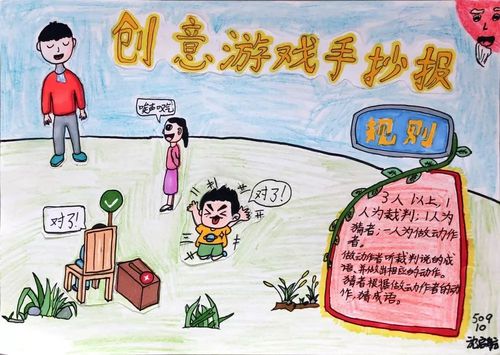 创意游戏手抄报
唉声叹气
规则
对了!
对了!
3人以上,1
人为裁判,1人为
猜者,一人为做动作
者。
做动作者听裁判说的成
语,并做出相应的动作。
猜者根据做动作者的动
作,猜成语。
509
10